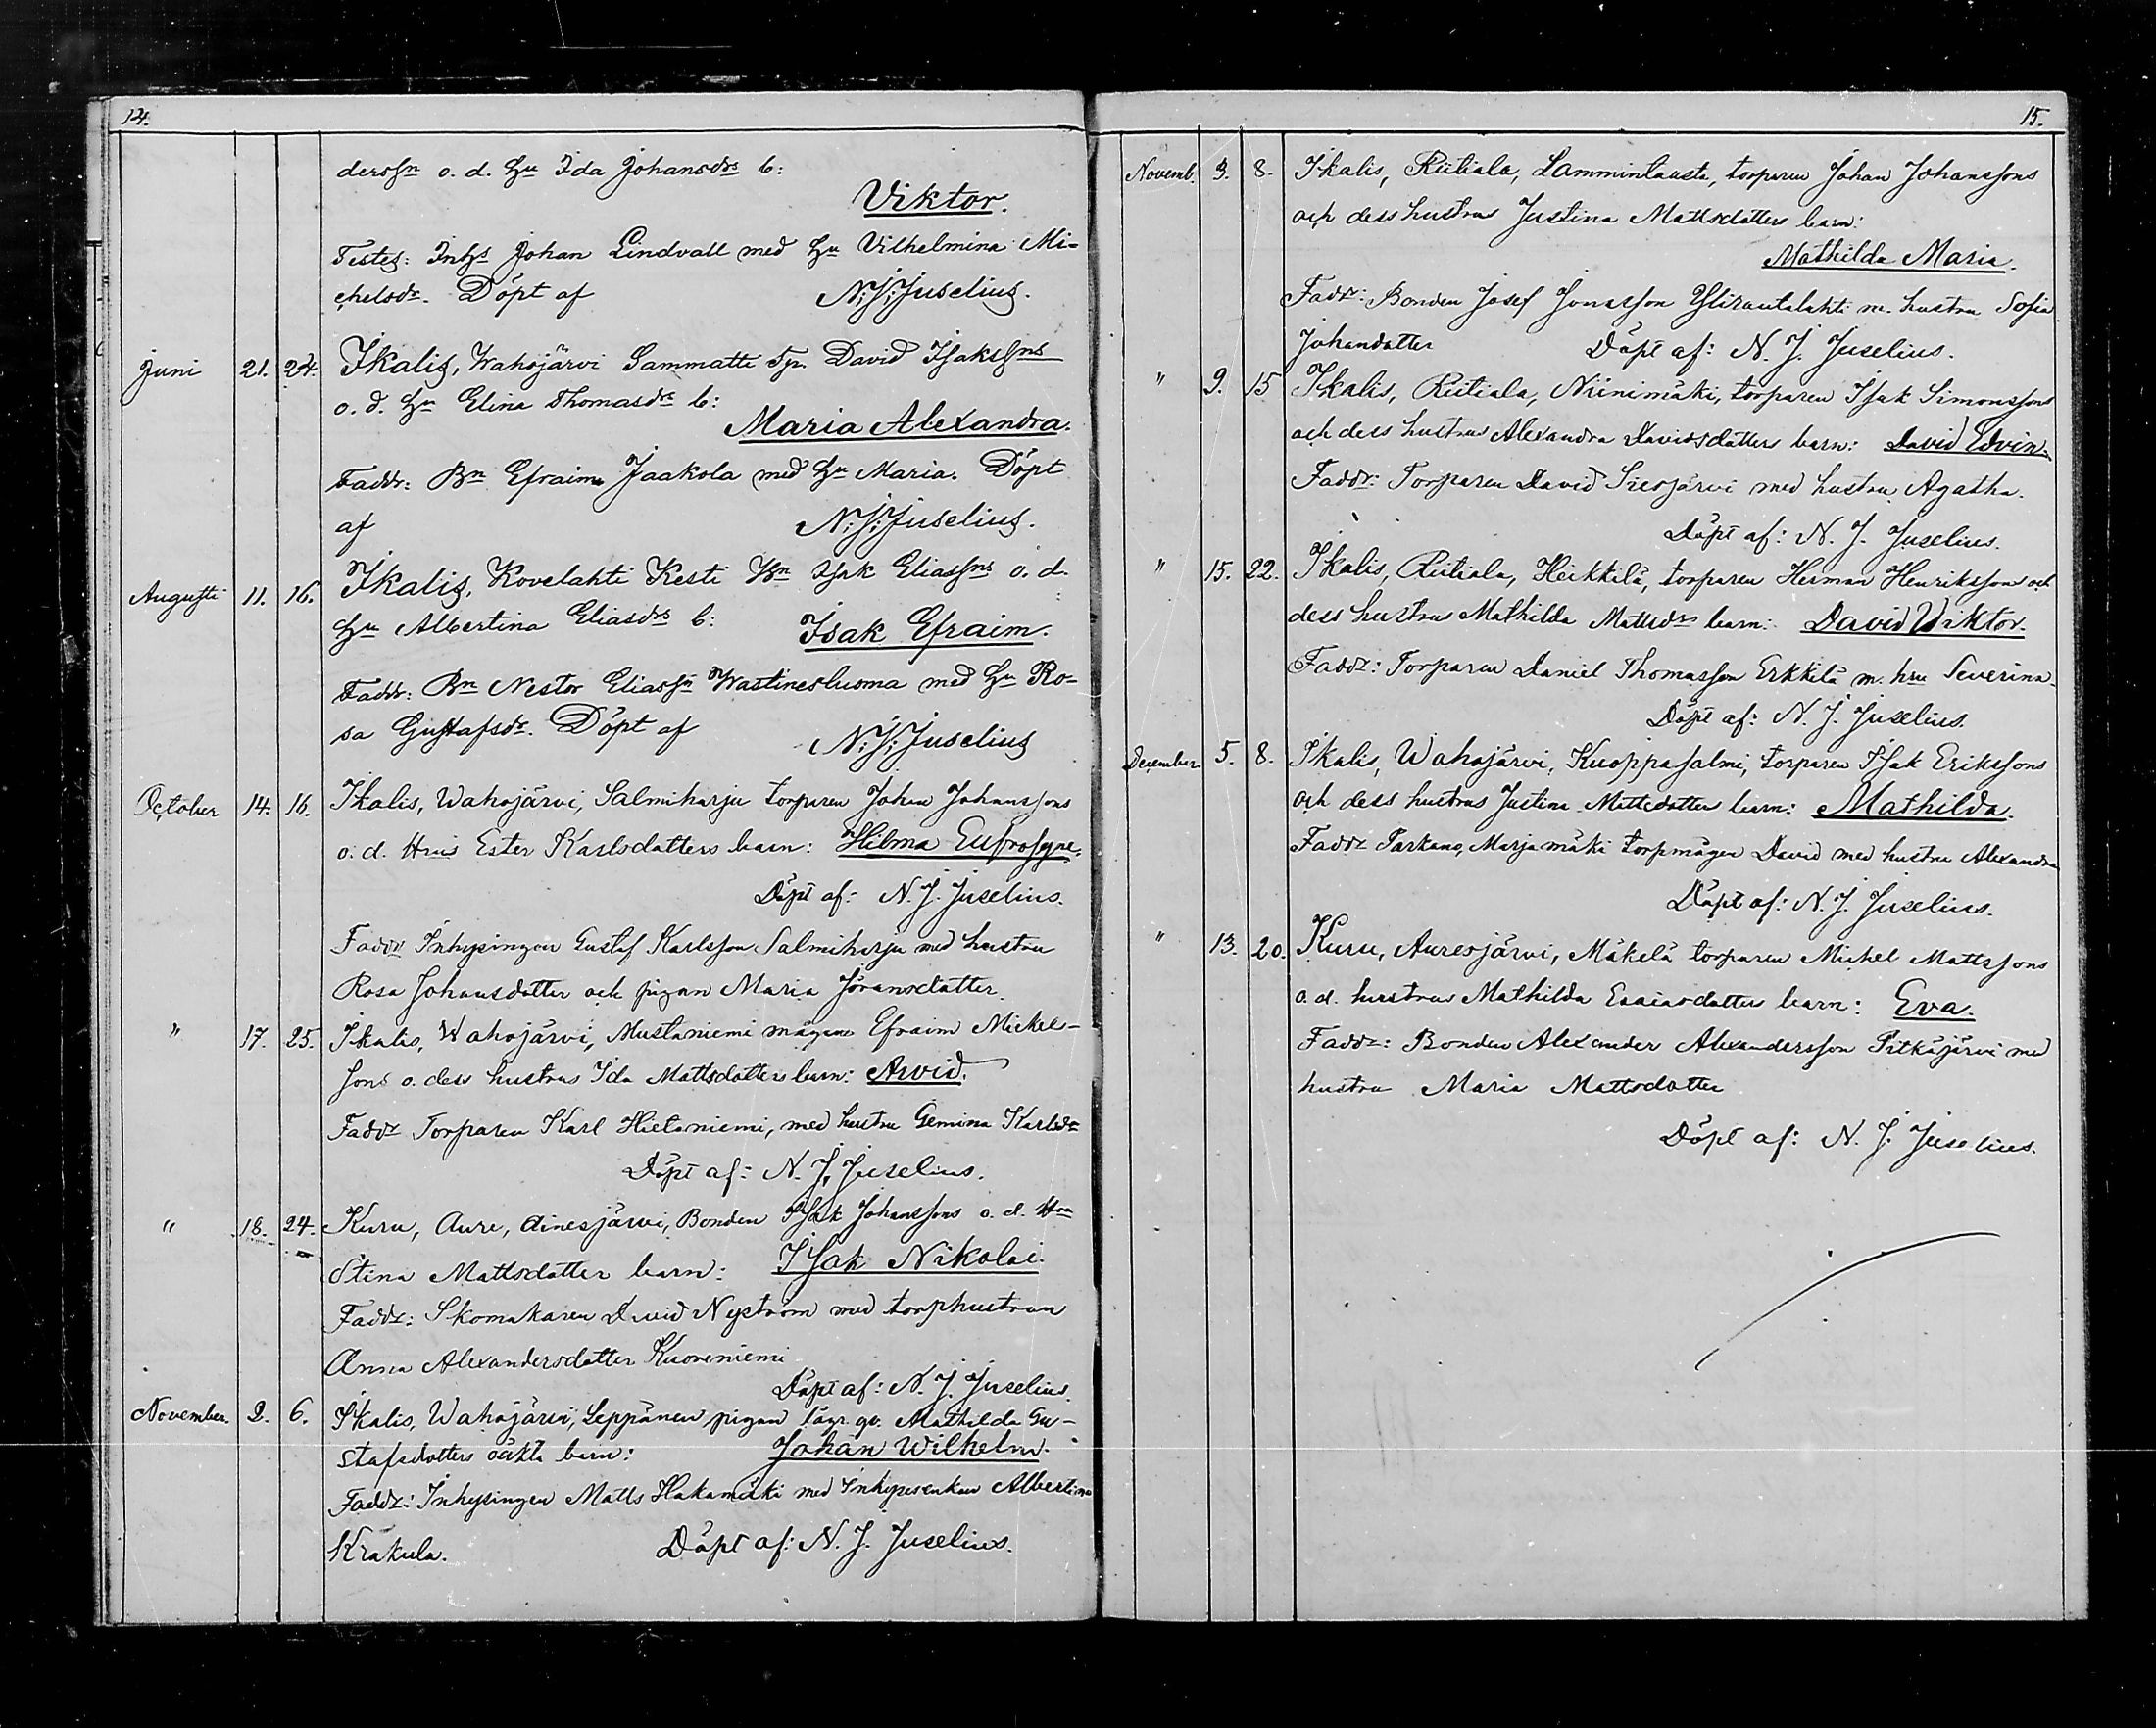 14.
derssn o. d. Hu Ida Johansdrs b:
Viktor.
Testes: Inhs Johan Lindvall med Hu Vilhelmina Mi-
chelsdr. Döpt af N:J:Juselius.
Juni 21. 24. Ikalis, Wahojärvi Sammatti Tp. David Isakssns
o. d. Hu Elina Thomasdrs b:
Maria Alexandra.
Faddr: Bn Efraim Jaakola med Hu Maria. Döpt
af N:J:Juselius.
Augusti 11. 16. Ikalis, Kovelahti Kesti Bn Isak Eliassns o. d.
Hu Albertina Eliasdrs b: Isak Efraim.
Faddr: Bn Nestor Eliassn Wastinesluoma med Hu Ro-
sa Gustafsdr. Döpt af N:J:Juselius
October 14. 16. Ikalis, Wahojärvi, Salmiharju torparen Johan Johanssons
o. d. Hrus Ester Karlsdatters barn: Hilma Eufrosyne.
Döpt af: N. J. Juselius.
Faddr Inhysingen Gustaf Karlsson Salmiharju med hustru
Rosa Johansdotter och pigan Maria Göransdatter.
" 17. 25. Ikalis, Wahojärvi, Mustaniemi mågen Efraim Mickel-
sons o. dess hustrus Ida Mattsdotters barn: Arvid.
Faddr Torparen Karl Hietaniemi, med hustru Gemina Karlsdr
Döpt af: N. J. Juselius.
" 18. 24. Kuru, Aure, Ainesjärvi, Bonden Isak Johanssons o. d. Hru
Stina Mattsdatter barn: Isak Nikolai.
Faddr: Skomakaren David Nyström med torphustrun
Anna Alexandersdatter Kuoreniemi
Döpt af: N. J. Juselius.
November. 2. 6. Ikalis, Wahojärvi, Leppänen pigan lägr. qv. Mathilda Gu-
stafsdotters oäkta barn: Johan Wilhelm.
Faddr: Inhysingen Matts Hakamäki med Inhysesenkan Albertina
Krakula. Döpt af: N. J. Juselius.
15.
Novemb. 3. 8. Ikalis, Riitiala, Lammintausta, torparen Johan Johanssons
och dess hustrus Justina Mattsdotters barn:
Mathilda Maria.
Faddr: Bonden Josef Jonasson Ylirautalahti m. hustru Sofia
Johandotter Döpt af: N. J. Juselius.
" 9. 15 Ikalis, Riitiala, Niinimäki, torparen Isak Simonssons
och dess hustrus Alexandra Davidsdotters barn: David Edvin.
Faddr: Torparen David Siesjärvi med hustru Agatha.
Döpt af: N. J. Juselius.
" 15. 22. Ikalis, Riitiala, Heikkilä, torparen Herman Henrikssons och
dess hustrus Mathilda Mattsdrs barn: David Wiktor.
Faddr: Torparen Daniel Thomasson Erkkilä m. hru Severina
Döpt af: N. J. Juselius.
December 5. 8. Ikalis, Wahojärvi, Kuoppasalmi, torparen Isak Erikssons
och dess hustrus Justina Mattsdotters barn: Mathilda.
Faddr Parkano, Marjamäki torpmågen David med hustru Alexandra
Döpt af: N. J. Juselius.
" 13. 20. Kuru, Auresjärvi, Mäkelä torparen Michel Mattssons
o. d. hustrus Mathilda Esaiasdotters barn: Eva.
Faddr: Bonden Alexander Alexandersson Pitkäjärvi med
hustru Maria Mattsdotter
Döpt af: N. J. Juselius.